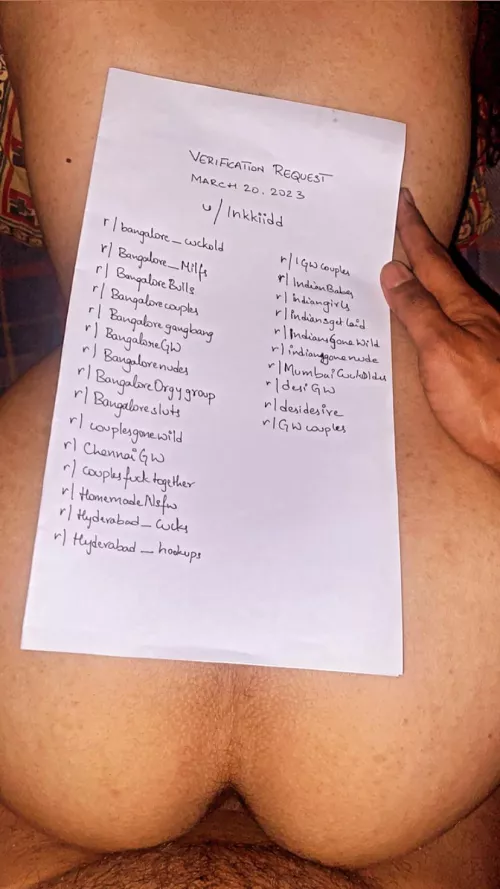 VERIFICATION REQUEST
MARCH 20. 2023
u/Inkkiidd
r/bangalore_cuckold
r/Bangalore_Milfs
r/BangaloreBulls
r/Bangalorecouples
r/Bangaloregangbang
r/BangaloreGW
r/Bangalorenudes
r/BangaloreOrgygroup
r/Bangaloresluts
r/couplesgonewild
r/ChennaiGW
r/couplesfucktogether
r/HomemadeNsfw
r/Hyderabad_Cucks
r/Hyderabad_hookups
r/IGWcouples
r/IndianBabes
r/Indiangirls
r/Indiansgetlaid
r/IndiansGoneWild
r/indiansgonenude
r/MumbaiCuckolds
r/desiGW
r/desidesire
r/GWcouples